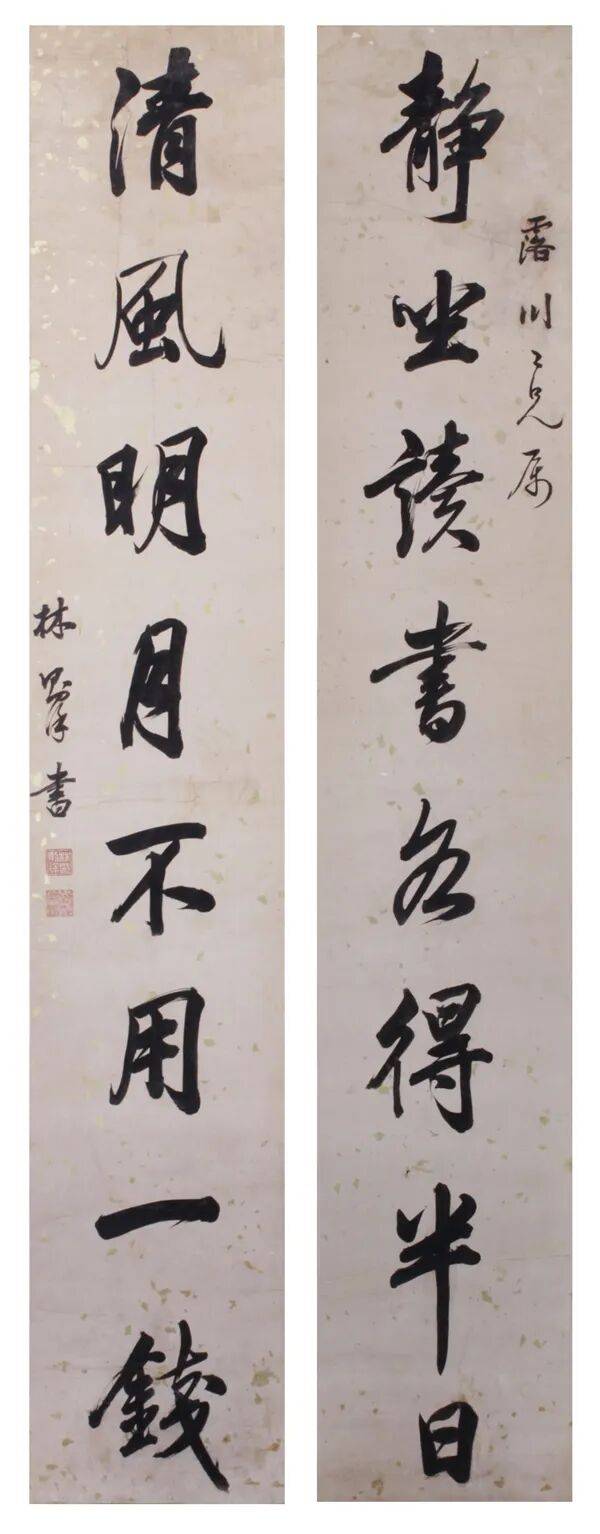 靜坐讀書各得半日
露川二兄屬
清風明月不用一錢
林則徐書